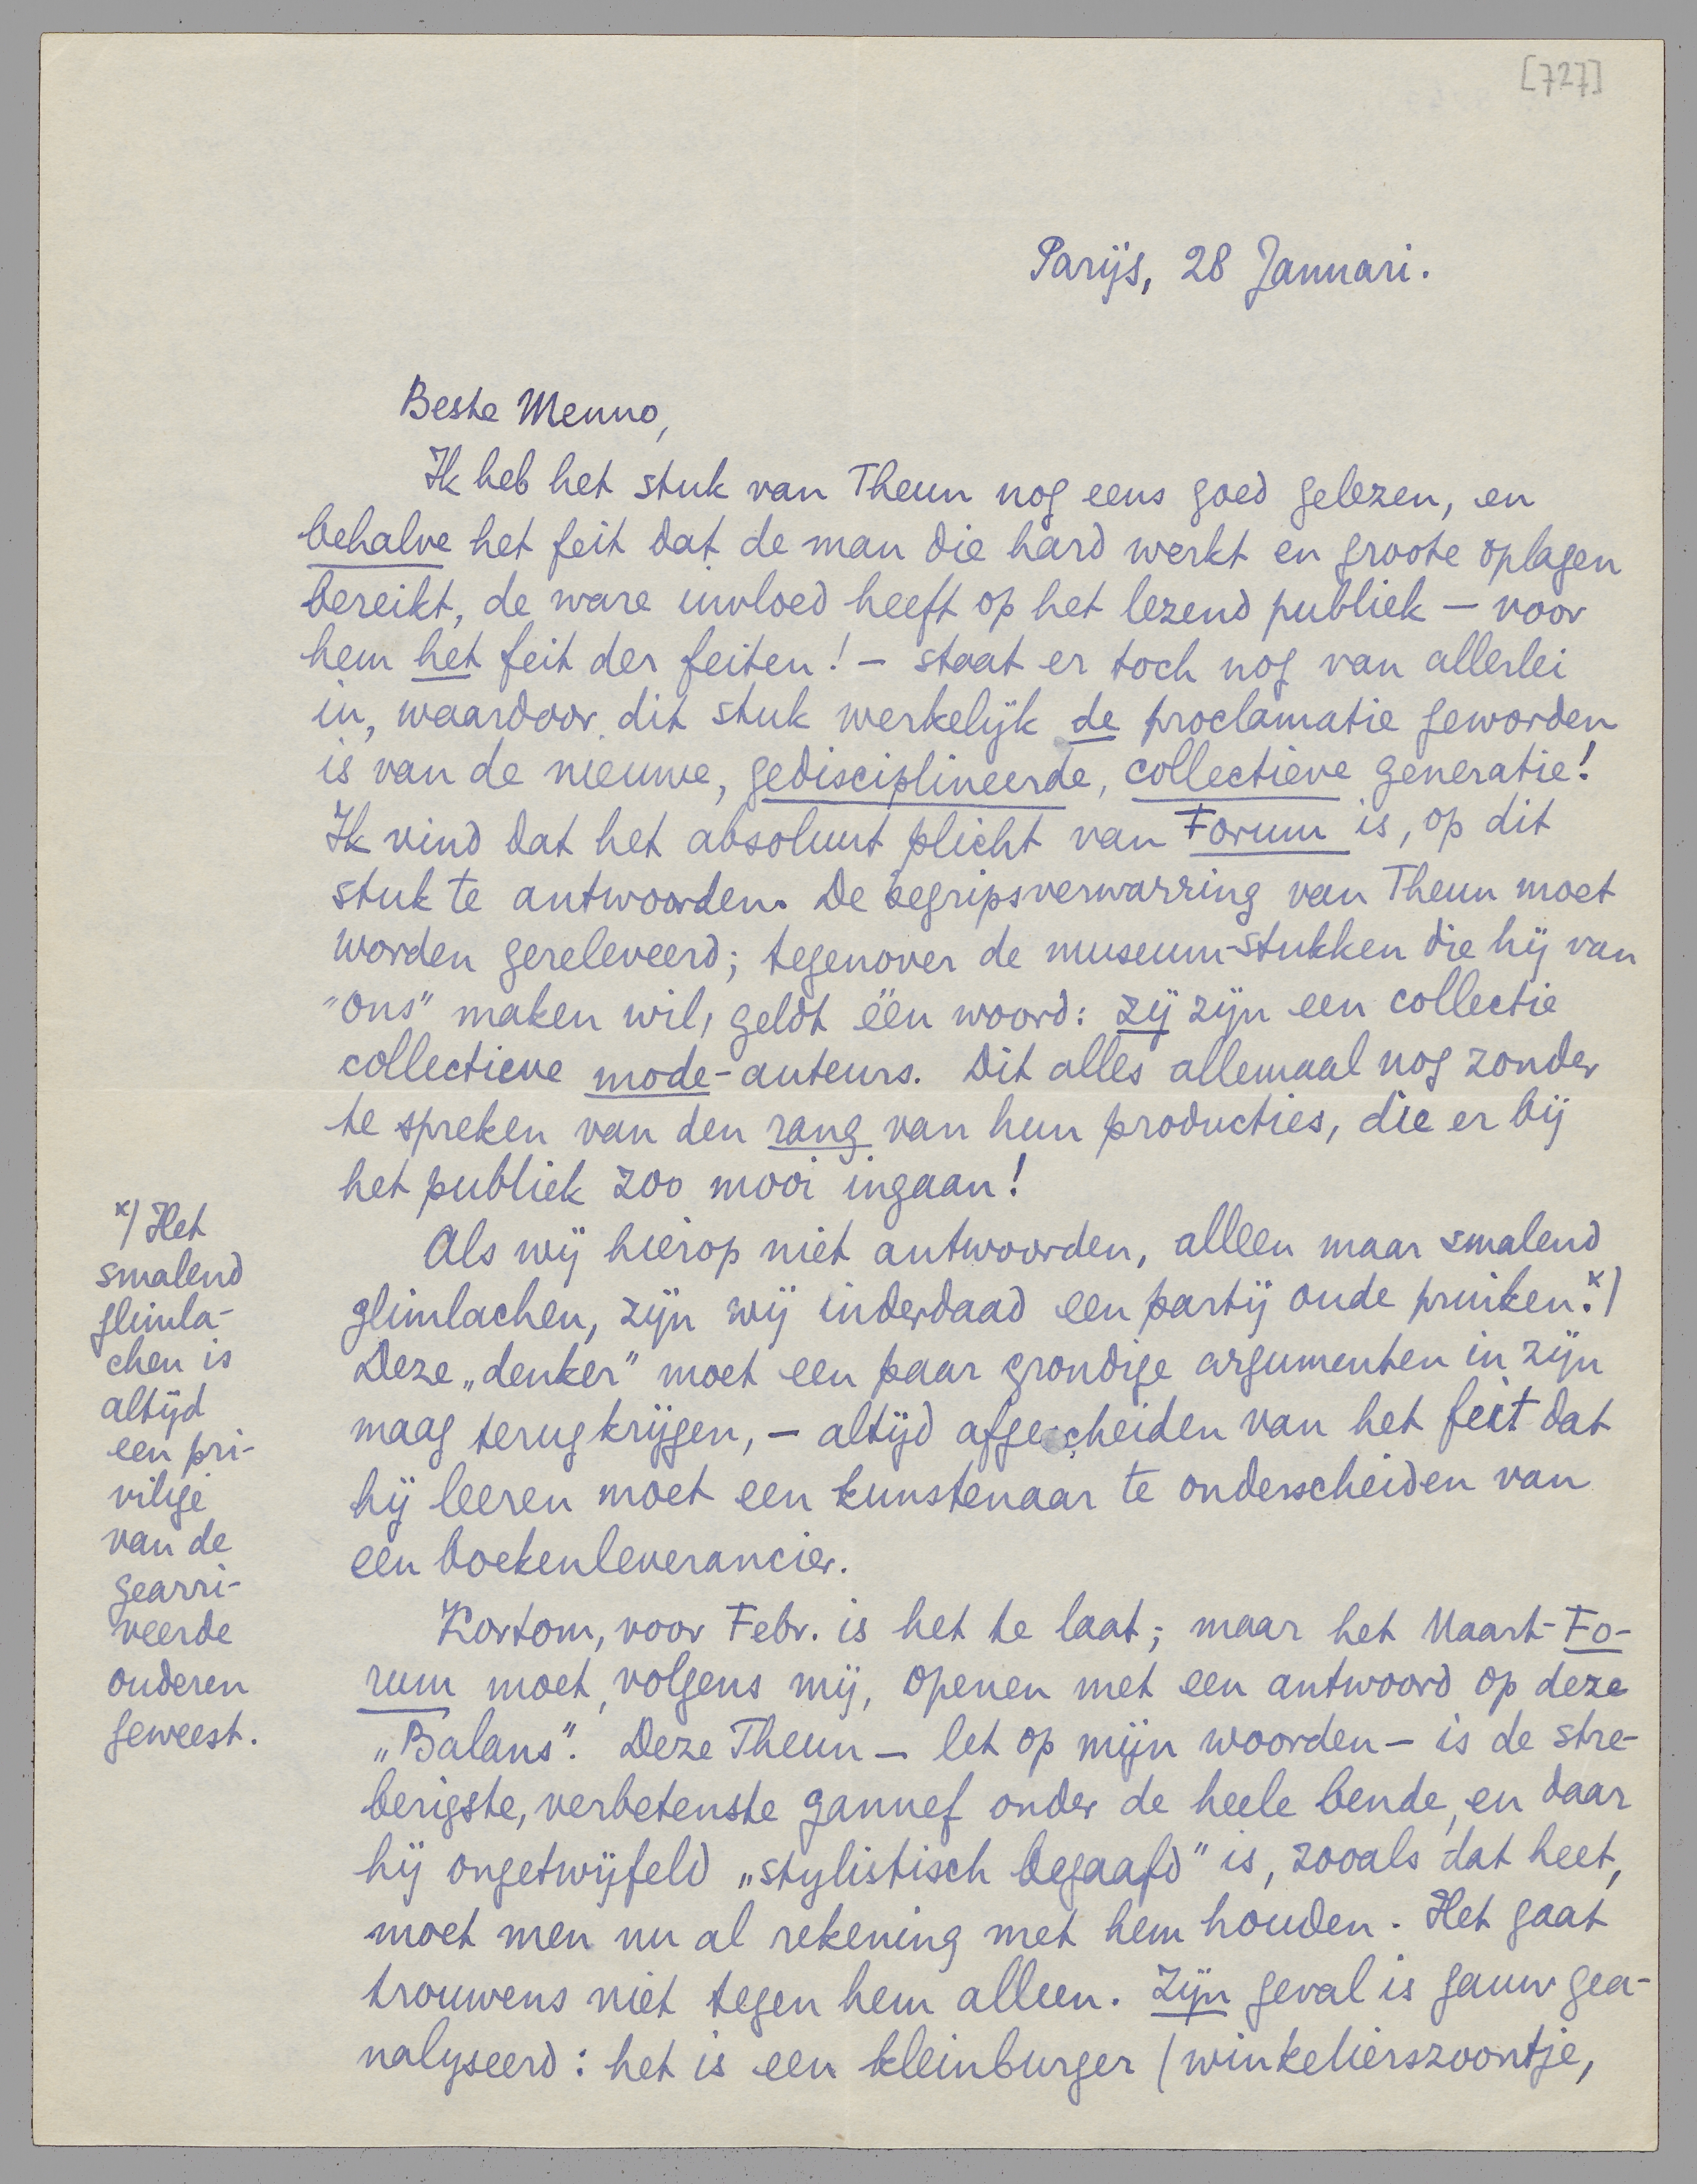 [727]
Parijs, 28 Januari.
Beste Menno,
Ik heb het stuk van Theun nog eens goed gelezen, en
behalve het feit dat de man die hard werkt en groote oplagen
bereikt, de ware invloed heeft op het lezend publiek – voor
hem het feit der feiten! – staat er toch nog van allerlei
in, waardoor dit stuk werkelijk de proclamatie geworden
is van de nieuwe, gedisciplineerde, collectieve generatie!
Ik vind dat het absoluut plicht van Forum is, op dit
stuk te antwoorden. De begripsverwarring van Theun moet
worden gereleveerd; tegenover de museum-stukken die hij van
"ons" maken wil, geldt één woord: zij zijn een collectie
collectieve mode-auteurs. Dit alles allemaal nog zonder
te spreken van den rang van hun producties, die er bij
het publiek zoo mooi ingaan!
Als wij hierop niet antwoorden, alleen maar smalend
glimlachen, zijn wij inderdaad een partij oude pruiken.x)
Deze „denker" moet een paar grondige argumenten in zijn
maag terugkrijgen, – altijd afgescheiden van het feit dat
hij leeren moet een kunstenaar te onderscheiden van
een boekenleverancier.
Kortom, voor Febr. is het te laat; maar het Maart-Fo-
rum moet, volgens mij, openen met een antwoord op deze
„Balans". Deze Theun – let op mijn woorden – is de stre-
berigste, verbetenste gannef onder de heele bende, en daar
hij ongetwijfeld „stylistisch begaafd" is, zooals dat heet,
moet men nu al rekening met hem houden. Het gaat
trouwens niet tegen hem alleen. Zijn geval is gauw gea-
nalyseerd: het is een kleinburger (winkelierszoontje,
x) Het
smalend
glimla-
chen is
altijd
een pri-
vilige
van de
gearri-
veerde
ouderen
geweest.